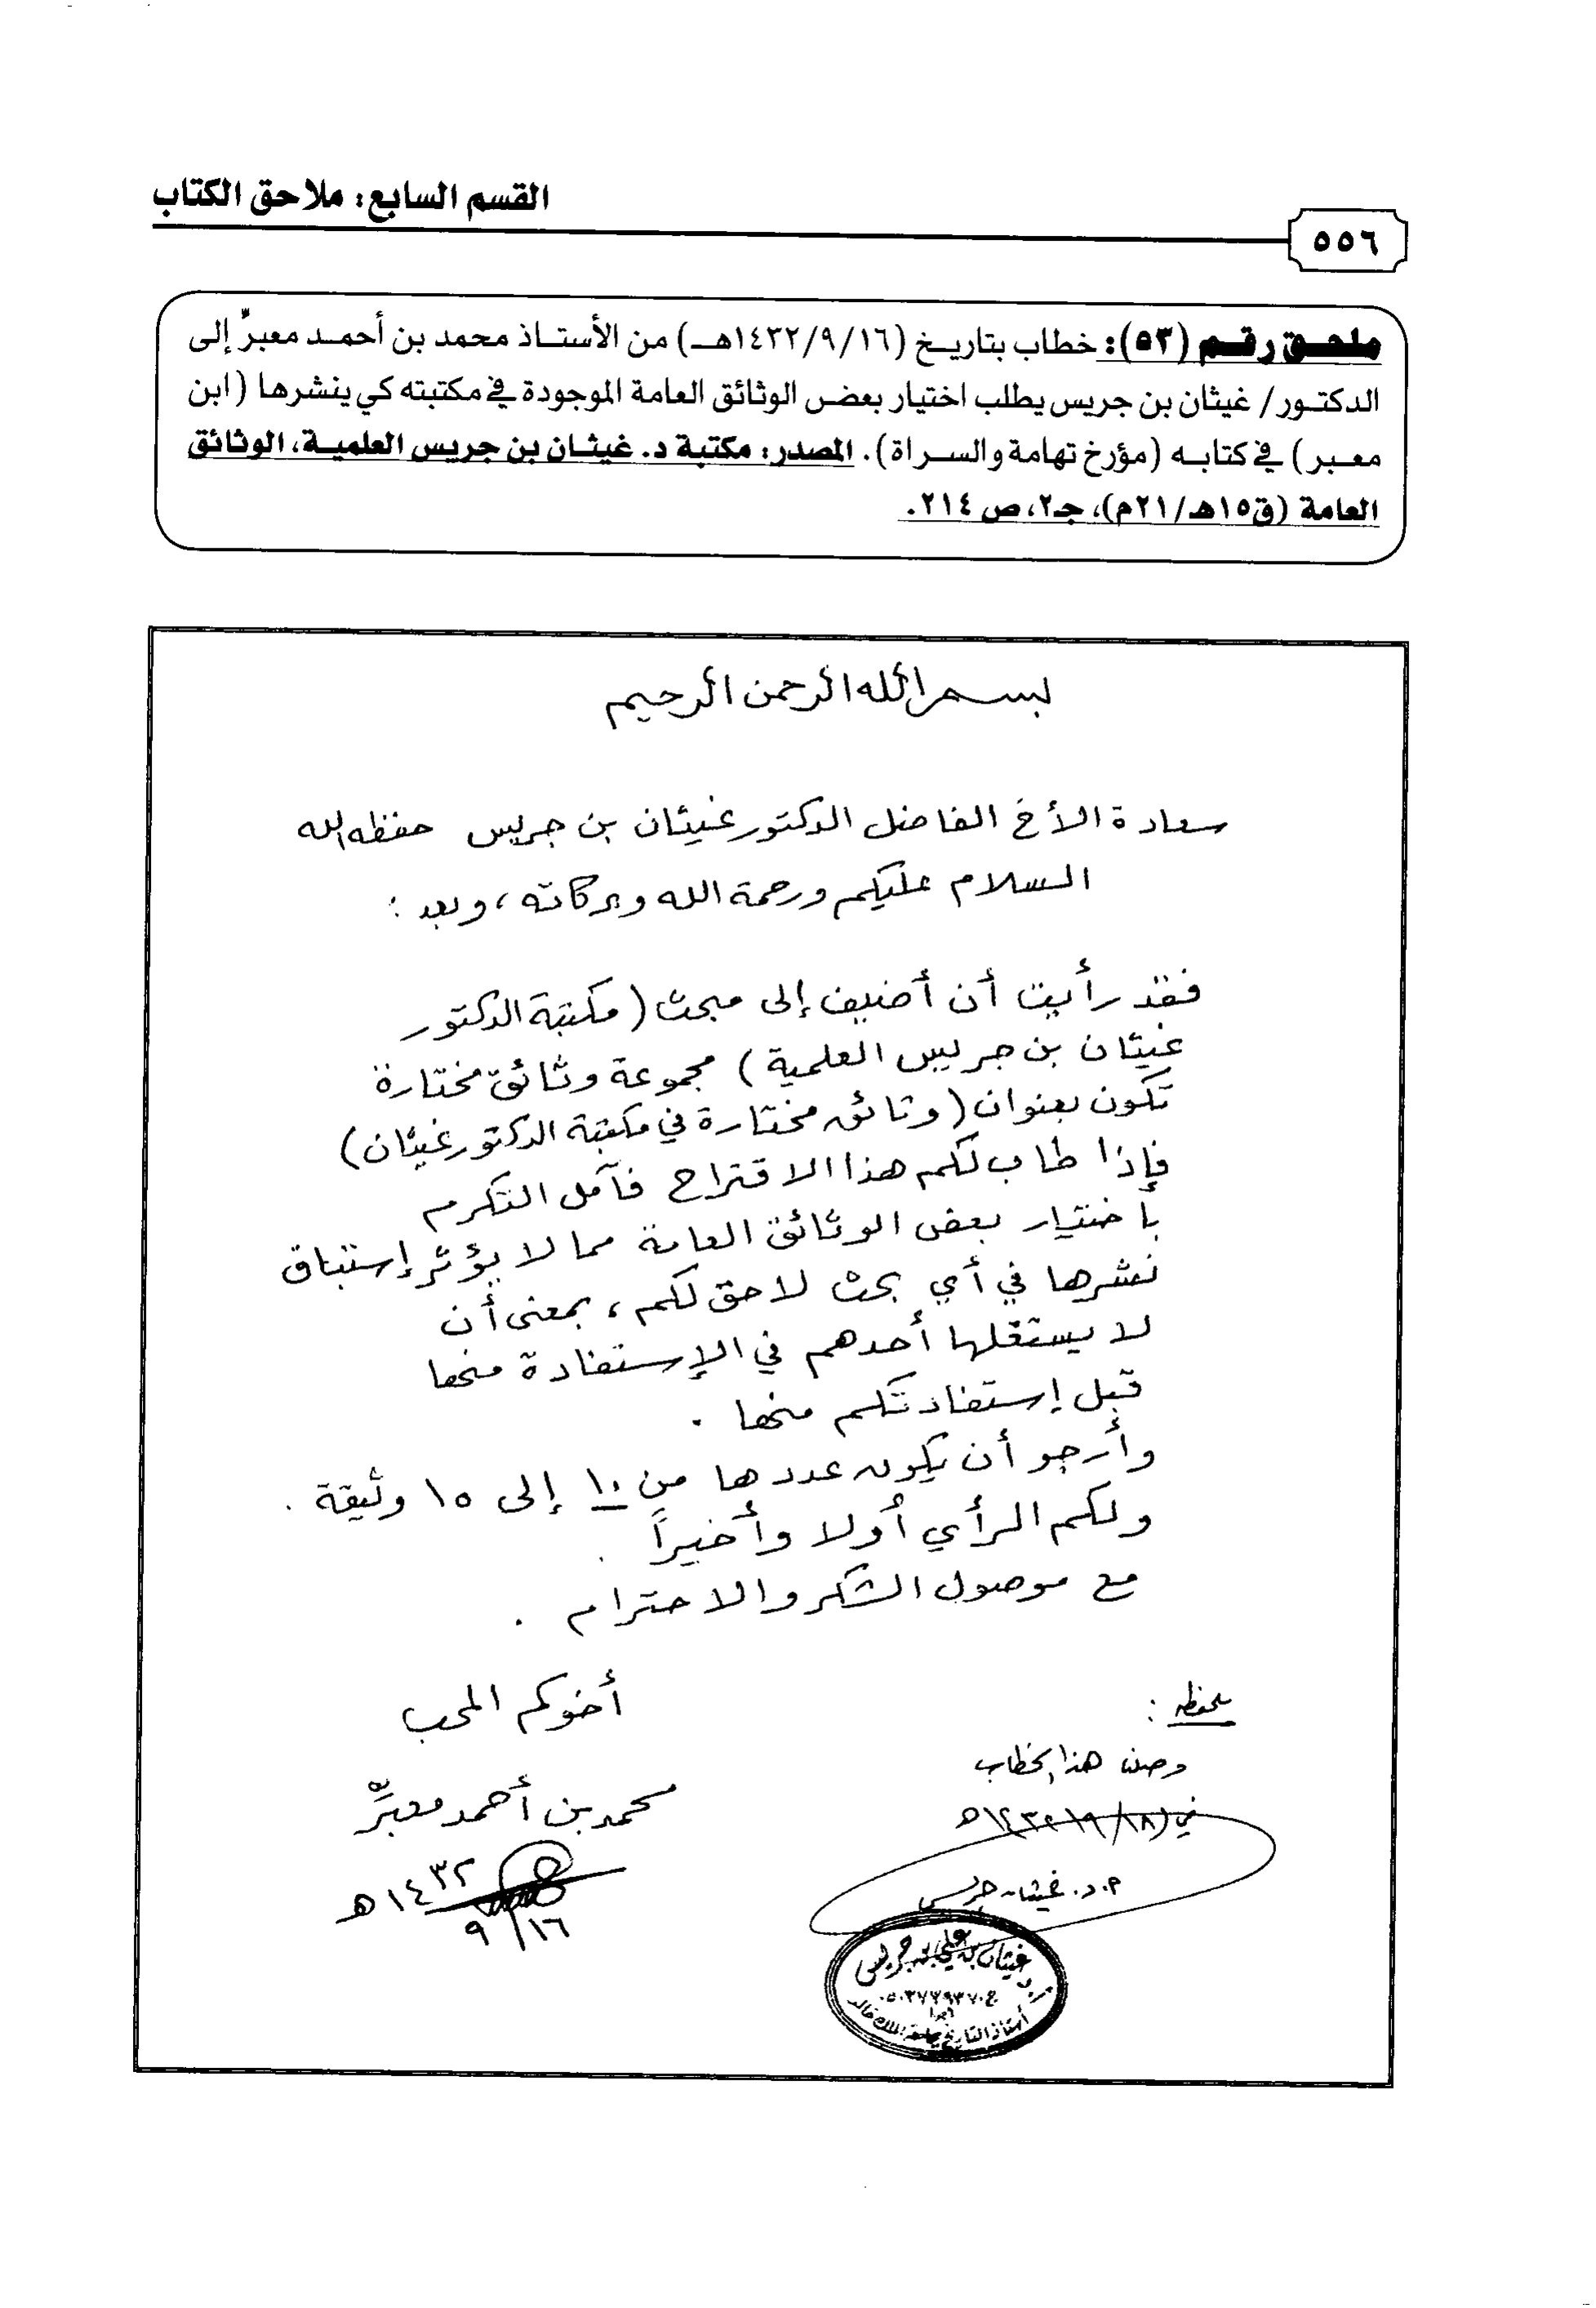 القسم السابع: ملاحق الكتاب
٥٥٦
ملحق رقم (٥٣): خطاب بتاريخ (١٤٣٢/٩/١٦هـ) من الأستاذ محمد بن أحمد معبرٌ إلى
الدكتور/ غيثان بن جريس يطلب اختيار بعض الوثائق العامة الموجودة في مكتبته كي ينشرها (ابن
معبر) في كتابه (مؤرخ تهامة والسراة). المصدر: مكتبة د. غيثان بن جريس العلمية، الوثائق
العامة (ق١٥هـ/٢١م)، جـ٢، ص ٢١٤.
بسم الله الرحمن الرحيم
سعادة الأخ الفاضل الدكتور غيثان بن جريس حفظه الله
السلام عليكم ورحمة الله وبركاته، وبعد:
فقد رأيت أن أضيف إلى مبحث (مكتبة الدكتور
غيثان بن جريس العلمية) مجموعة وثائق مختارة
تكون بعنوان (وثائق مختارة في مكتبة الدكتور غيثان)
فإذا طاب لكم هذا الاقتراح فآمل التكرم
باختيار بعض الوثائق العامة مما لا يؤثر إستباق
نشرها في أي بحث لاحق لكم، بمعنى أن
لا يستغلها أحدهم في الإستفادة منها
قبل إستفادتكم منها.
وأرجو أن يكون عددها من ١٠ إلى ١٥ وثيقة.
ولكم الرأي أولا وأخيراً.
مع موصول الشكر والاحترام.
أخوكم المحب
محمد بن أحمد معبرِّ
١٤٣٢هـ
٩/١٦
ملحظه:
وصلنا هذا الخطاب
في ١٤٣٢/٩/١٨هـ
أ.د. غيثان جريس
أ.د. غيثان بن علي بن جريس
ج.٠٥٠٣٧٧٩٣٧٠
أبها
أستاذ التاريخ بجامعة الملك خالد